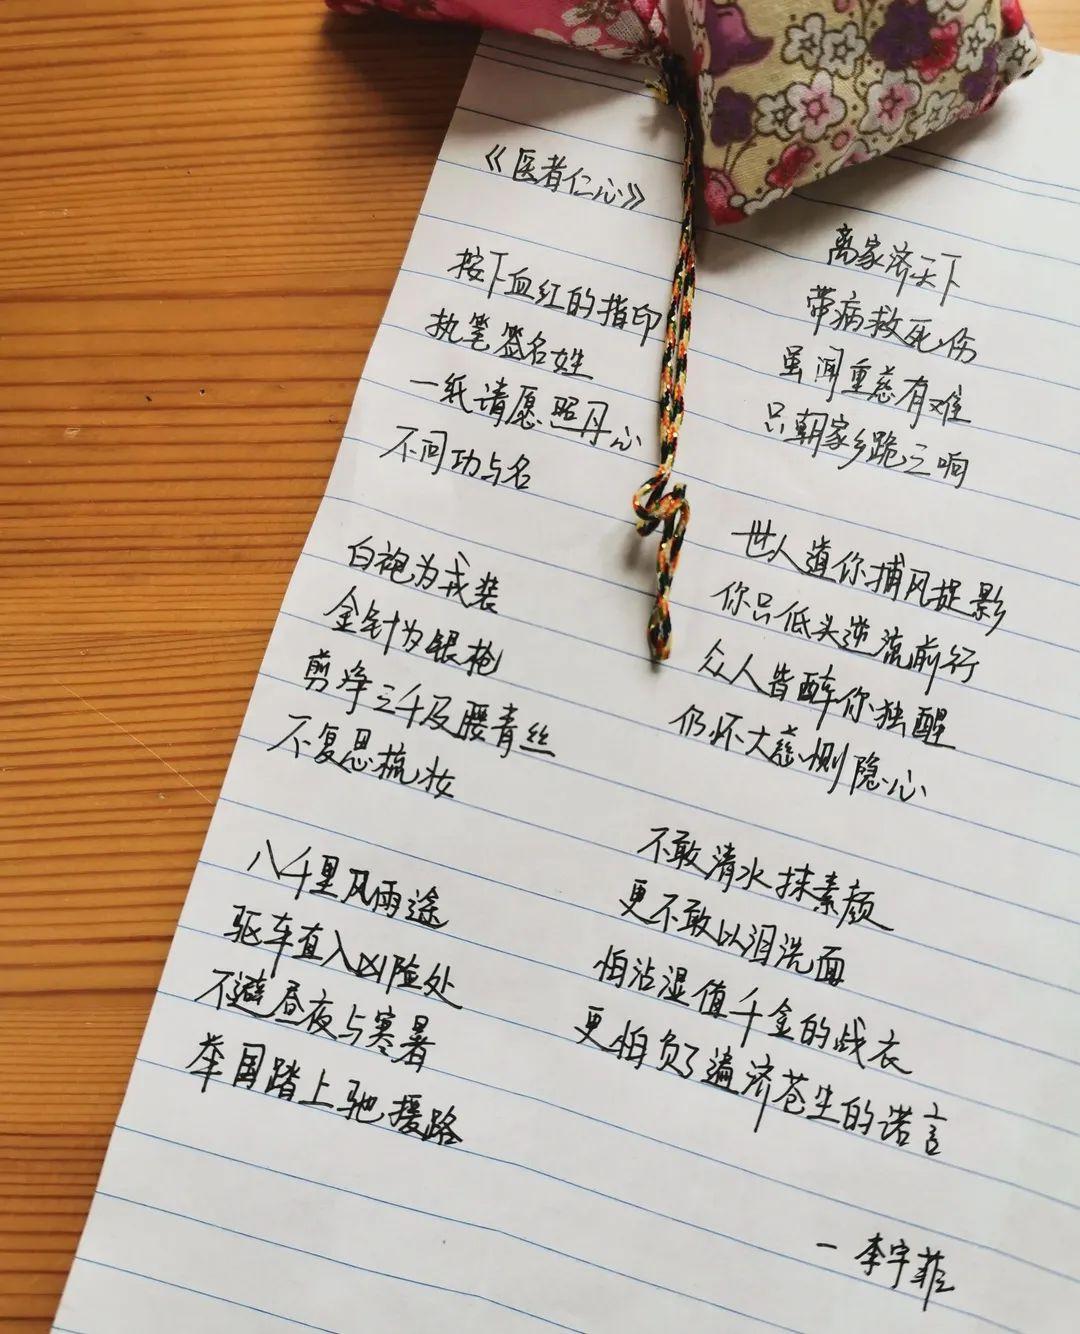 《医者仁心》
按下血红的指印
执笔签名姓
一纸请愿照丹心
不问功与名
白袍为戎装
金针为银枪
剪净三千及腰青丝
不复思梳妆
八千里风雨途
驱车直入凶险处
不避昼夜与寒暑
举国踏上驰援路
离家济天下
带病救死伤
虽闻重慈有难
只朝家乡跪三响
世人道你捕风捉影
你只低头逆流前行
众人皆醉你独醒
仍怀大慈恻隐心
不敢清水抹素颜
更不敢以泪洗面
怕沾湿值千金的战衣
更怕负了遍济苍生的诺言
一李宇菲